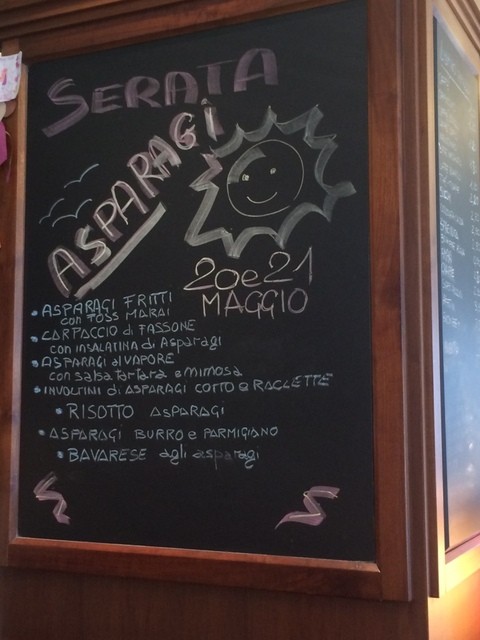 SERATA
ASPARAGI
20 e 21
MAGGIO
• ASPARAGI FRITTI
con TOSS MARAI
• CARPACCIO di FASSONE
con insalatina di Asparagi
• ASPARAGI al VAPORE
con salsa tartara e mimosa
• INVOLTINI di ASPARAGI COTTO e RACLETTE
• RISOTTO ASPARAGI
• ASPARAGI BURRO e PARMIGIANO
• BAVARESE agli asparagi